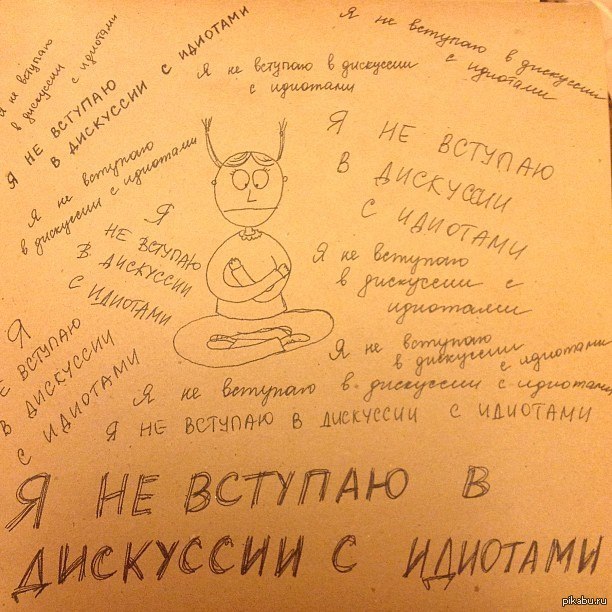 Я не вступаю
в дискуссии с идиотами
Я НЕ ВСТУПАЮ
В ДИСКУССИИ С ИДИОТАМИ
Я не вступаю в дискуссии
с идиотами
Я не вступаю в дискуссии
с идиотами
Я не вступаю
в дискуссии с идиотами
Я НЕ ВСТУПАЮ
В ДИСКУССИИ
С ИДИОТАМИ
Я
НЕ ВСТУПАЮ
В ДИСКУССИИ
С ИДИОТАМИ
Я не вступаю
в дискуссии с
идиотами
Я
НЕ ВСТУПАЮ
В ДИСКУССИИ
С ИДИОТАМИ
Я не вступаю
в дискуссии с идиотами
Я не вступаю в дискуссии с идиотами
Я НЕ ВСТУПАЮ В ДИСКУССИИ С ИДИОТАМИ
Я НЕ ВСТУПАЮ В
ДИСКУССИИ С ИДИОТАМИ
pikabu.ru